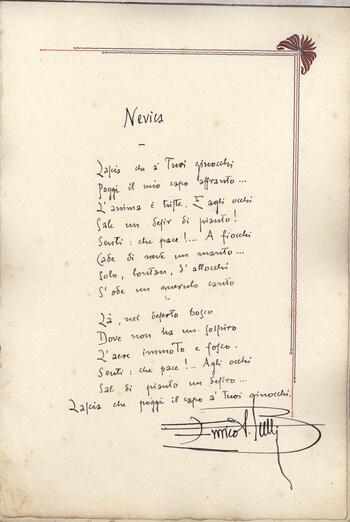 Nevica
Lascia che a' Tuoi ginocchi
Poggi il mio capo affranto...
L'anima è triste. E agli occhi
Sale un desir di pianto!
Senti: che pace!... A fiocchi
Cade di neve un manto...
Solo, lontan, d'allocchi
S'ode un querulo canto
Là, nel deserto bosco
Dove non ha un sospiro
L'aere immoto e fosco.
Senti: che pace!... Agli occhi
Sal di pianto un desiro...
Lascia che poggi il capo a' Tuoi ginocchi.
Enrico